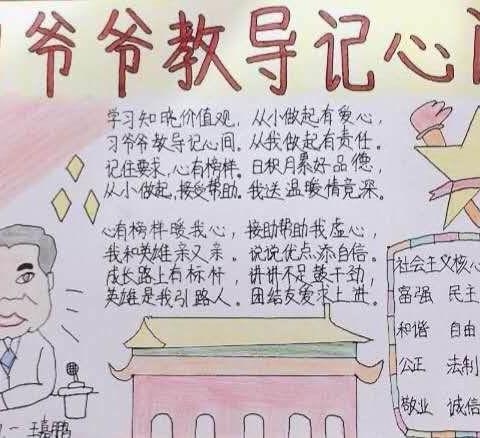 习爷爷教导记心间
学习知晓价值观，从小做起有爱心，
习爷爷教导记心间。从我做起有责任。
记住要求，心有榜样。日积月累好品德，
从小做起，接受帮助。我送温暖情竟深。
心有榜样暖我心，接助帮助我虚心，
我和英雄亲又亲。说说优点添自信。
成长路上有标杆，讲讲不足鼓干劲，
英雄是我引路人。团结友爱求上进。
社会主义核心
富强 民主
和谐 自由
公正 法制
敬业 诚信
一 王嘉鹏